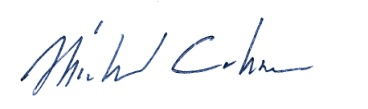 Michael Cohen